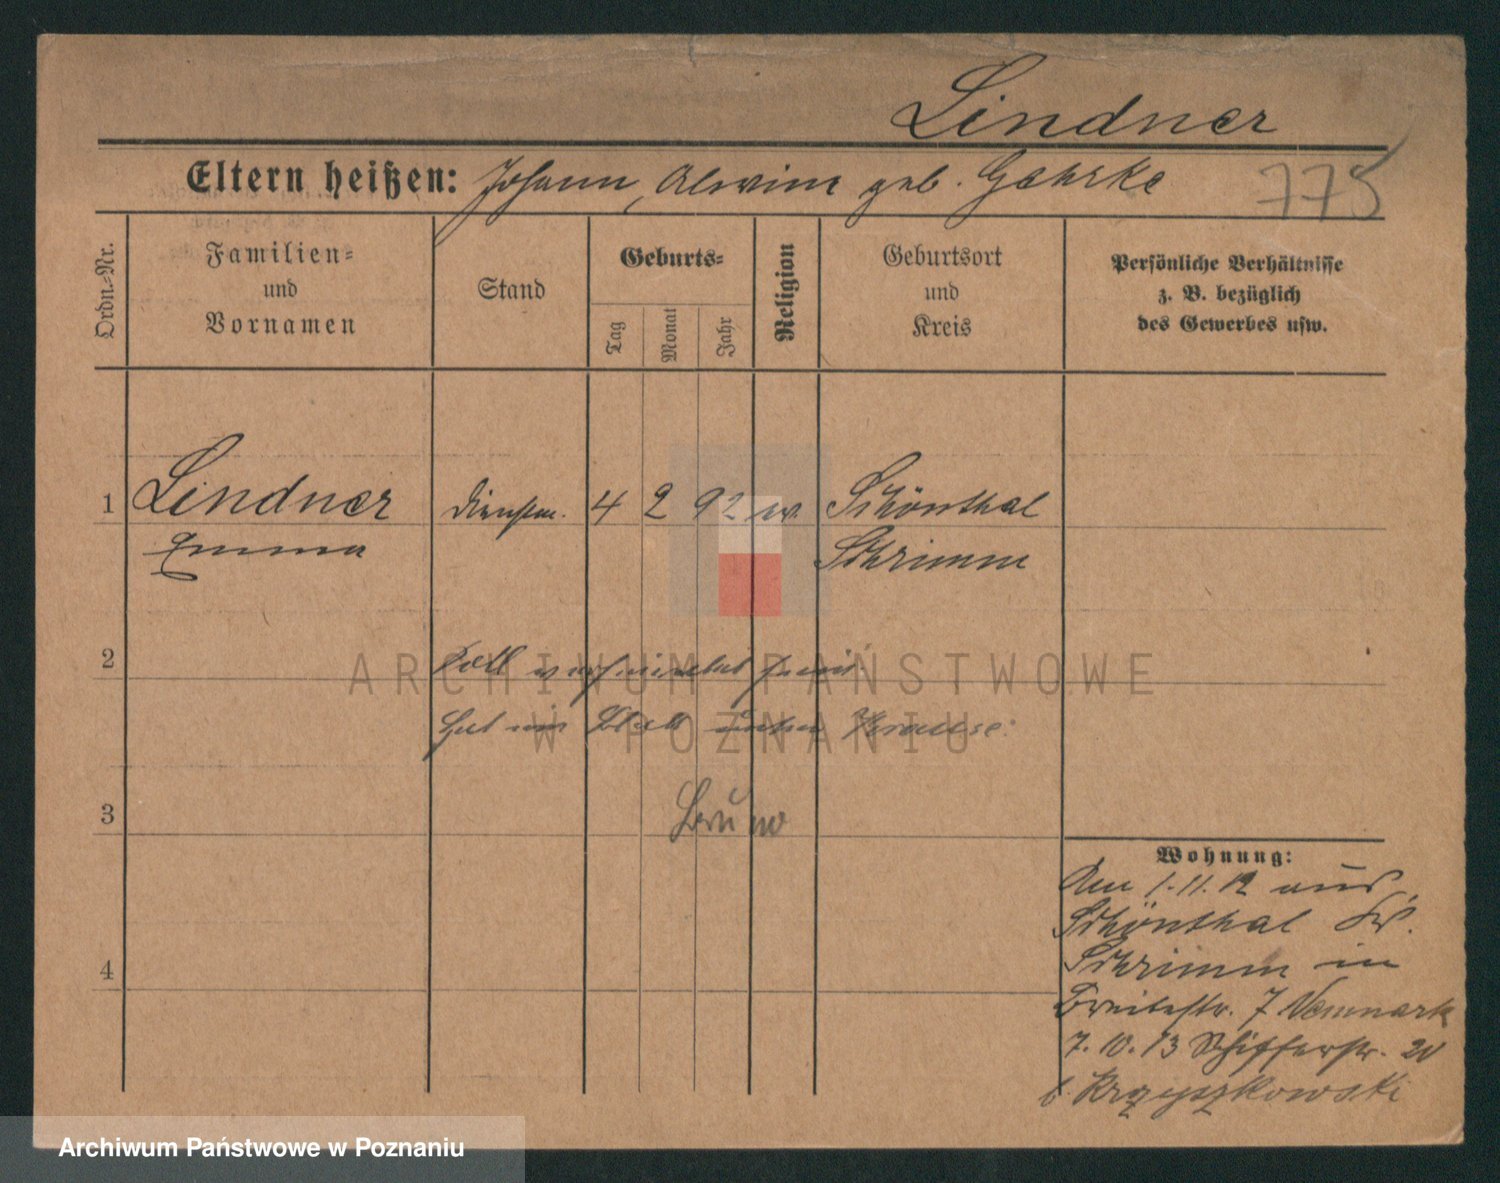 Lindner
Eltern heißen: Johann, Alwine geb. Gahrke
775
Ordn.-Nr.
Familien-
und
Vornamen
Stand
Geburts-
Tag
Monat
Jahr
Religion
Geburtsort
und
Kreis
Persönliche Verhältnisse
z. B. bezüglich
des Gewerbes usw.
1 Lindner Dienstm. 4 2 92 ev. Schönthal
Emma Schrimm
2 Soll verheiratet sein.
Hat ein Blatt unter Krause:
3 Bruno
4
Wohnung:
Am 1.11.12 aus
Schönthal Kr.
Schrimm in
Breitestr. 7
7.10.13 Schifferstr. 20
b. Krzyszkowski
ARCHIWUM PAŃSTWOWE
W POZNANIU
Archiwum Państwowe w Poznaniu